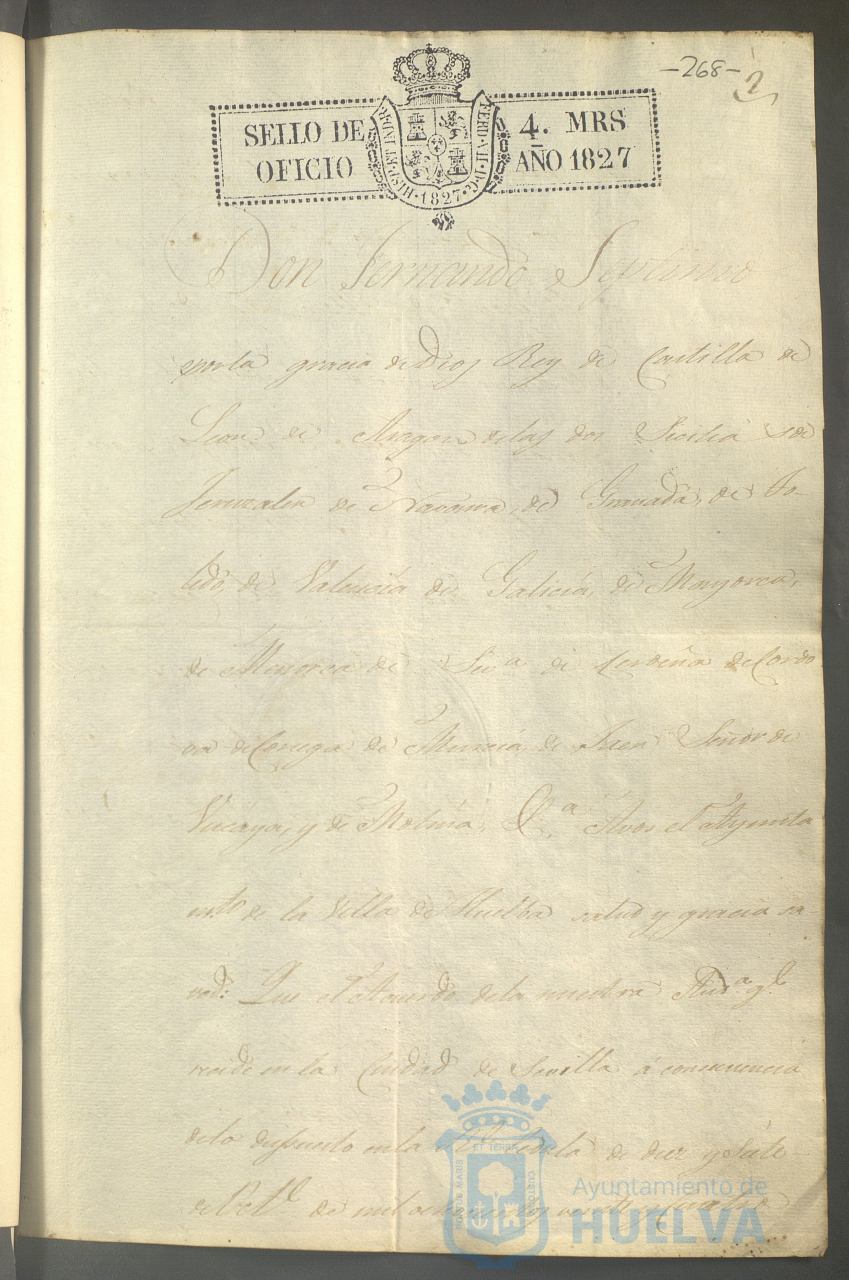 -268-
2
SELLO DE OFICIO
4. MRS AÑO 1827
HISP. ET IND. R. FERD. VII. D. G. 1827.
Don Fernando Septimo
por la gracia de Dios Rey de Castilla de
Leon de Aragon de las dos Sicilias de
Jeruzalen de Navarra, de Granada, de To-
ledo, de Valencia de Galicia, de Mayorca,
de Menorca de Sev.a de Cerdeña de Cordo
va de Corcega de Murcia, de Jaen Señor de
Vizcaya, y de Molina, &.a Avos el Ayunta
m.to de la Villa de Huelba salud y gracia sa-
ved: Que el Acuerdo de la nuestra Aud.a q.e
recide en la Ciudad de Sevilla á consecuencia
de lo dispuesto en la R.l Cedula de diez y siete
de Oct.e de mil ochocientos veinte y cuatro
Ayuntamiento de
HUELVA